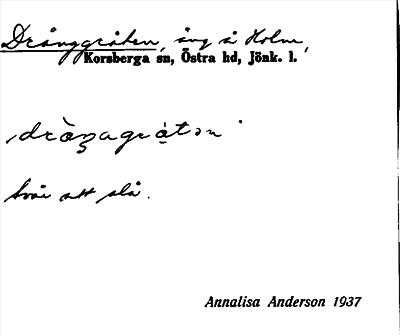 Drånggråten, äng å Holm,
Korsberga sn, Östra hd, Jönk. l.
Svår att slå.
Annalisa Anderson 1937